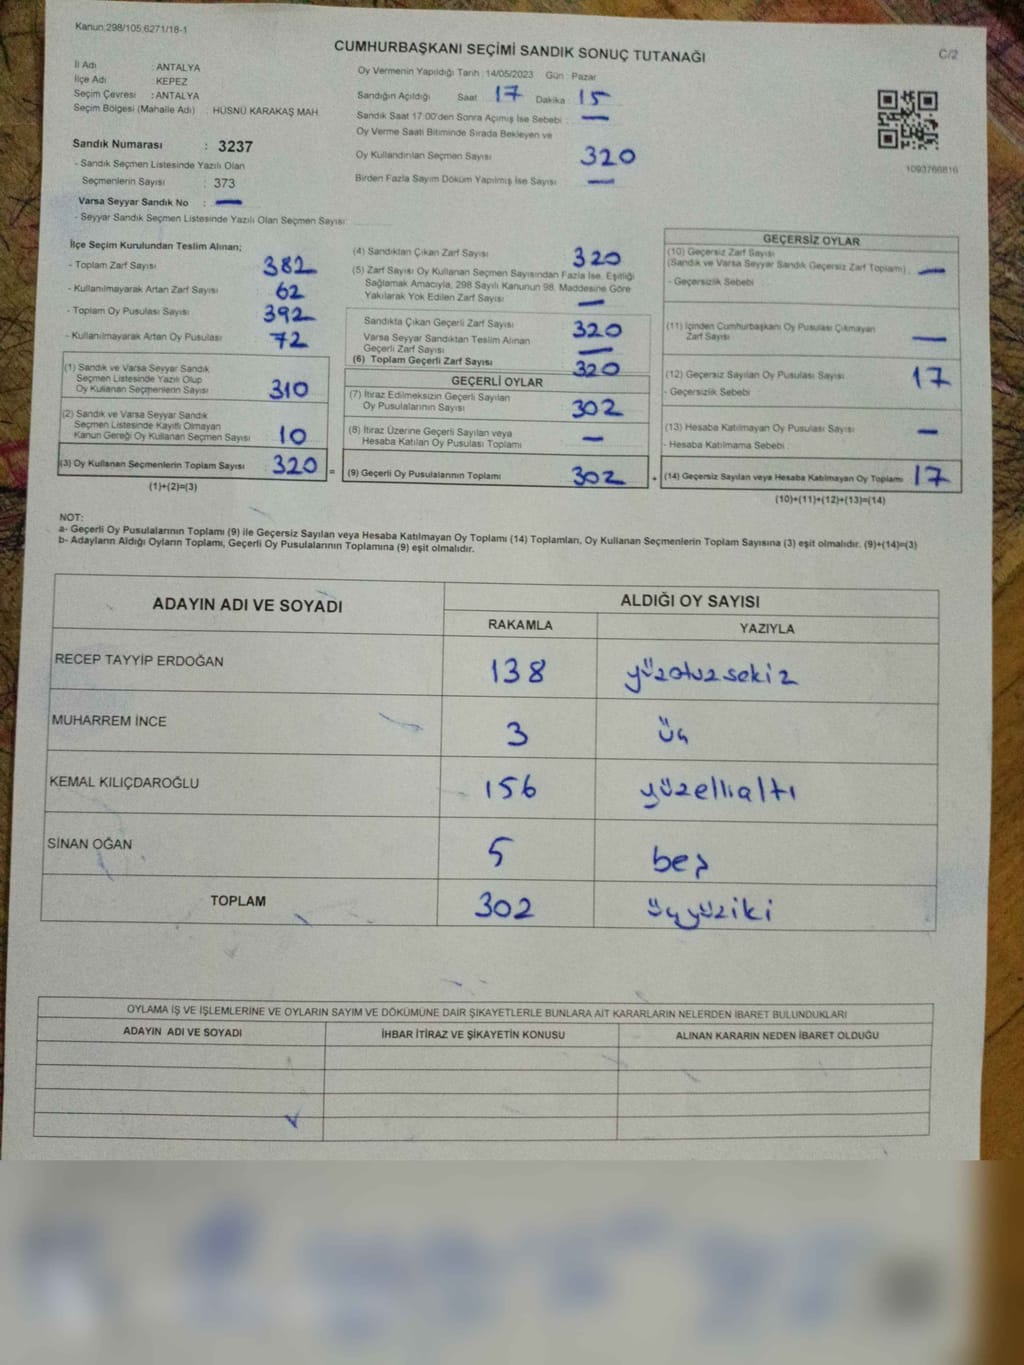 Kanun:298/105;6271/18-1
CUMHURBAŞKANI SEÇİMİ SANDIK SONUÇ TUTANAĞI
C/2
İl Adı : ANTALYA
İlçe Adı : KEPEZ
Seçim Çevresi : ANTALYA
Seçim Bölgesi (Mahalle Adı) : HÜSNÜ KARAKAŞ MAH.
Sandık Numarası : 3237
- Sandık Seçmen Listesinde Yazılı Olan
Seçmenlerin Sayısı : 373
Varsa Seyyar Sandık No : —
- Seyyar Sandık Seçmen Listesinde Yazılı Olan Seçmen Sayısı:
Oy Vermenin Yapıldığı Tarih : 14/05/2023 Gün : Pazar
Sandığın Açıldığı Saat 17 Dakika : 15
Sandık Saat 17:00'den Sonra Açımış İse Sebebi : —
Oy Verme Saati Bitiminde Sırada Bekleyen ve
Oy Kullandırılan Seçmen Sayısı 320
Birden Fazla Sayım Döküm Yapılmış İse Sayısı —
1093766816
İlçe Seçim Kurulundan Teslim Alınan;
- Toplam Zarf Sayısı 382
- Kullanılmayarak Artan Zarf Sayısı 62
- Toplam Oy Pusulası Sayısı 392
- Kullanılmayarak Artan Oy Pusulası 72
(1) Sandık ve Varsa Seyyar Sandık
Seçmen Listesinde Yazılı Olup
Oy Kullanan Seçmenlerin Sayısı 310
(2) Sandık ve Varsa Seyyar Sandık
Seçmen Listesinde Kayıtlı Olmayan
Kanun Gereği Oy Kullanan Seçmen Sayısı 10
(3) Oy Kullanan Seçmenlerin Toplam Sayısı 320 =
(1)+(2)=(3)
(4) Sandıktan Çıkan Zarf Sayısı 320
(5) Zarf Sayısı Oy Kullanan Seçmen Sayısından Fazla İse, Eşitliği
Sağlamak Amacıyla, 298 Sayılı Kanunun 98. Maddesine Göre
Yakılarak Yok Edilen Zarf Sayısı —
Sandıkta Çıkan Geçerli Zarf Sayısı 320
Varsa Seyyar Sandıktan Teslim Alınan
Geçerli Zarf Sayısı —
(6) Toplam Geçerli Zarf Sayısı 320
GEÇERLİ OYLAR
(7) İtiraz Edilmeksizin Geçerli Sayılan
Oy Pusulalarının Sayısı 302
(8) İtiraz Üzerine Geçerli Sayılan veya
Hesaba Katılan Oy Pusulası Toplamı —
(9) Geçerli Oy Pusulalarının Toplamı 302 +
GEÇERSİZ OYLAR
(10) Geçersiz Zarf Sayısı
(Sandık ve Varsa Seyyar Sandık Geçersiz Zarf Toplamı) : —
- Geçersizlik Sebebi
(11) İçinden Cumhurbaşkanı Oy Pusulası Çıkmayan
Zarf Sayısı —
(12) Geçersiz Sayılan Oy Pusulası Sayısı 17
- Geçersizlik Sebebi
(13) Hesaba Katılmayan Oy Pusulası Sayısı —
- Hesaba Katılmama Sebebi :
(14) Geçersiz Sayılan veya Hesaba Katılmayan Oy Toplamı 17
(10)+(11)+(12)+(13)=(14)
NOT:
a- Geçerli Oy Pusulalarının Toplamı (9) ile Geçersiz Sayılan veya Hesaba Katılmayan Oy Toplamı (14) Toplamları, Oy Kullanan Seçmenlerin Toplam Sayısına (3) eşit olmalıdır. (9)+(14)=(3)
b- Adayların Aldığı Oyların Toplamı, Geçerli Oy Pusulalarının Toplamına (9) eşit olmalıdır.
ADAYIN ADI VE SOYADI ALDIĞI OY SAYISI
RAKAMLA YAZIYLA
RECEP TAYYİP ERDOĞAN 138 yüzotuzsekiz
MUHARREM İNCE 3 üç
KEMAL KILIÇDAROĞLU 156 yüzellialtı
SİNAN OĞAN 5 beş
TOPLAM 302 üçyüziki
OYLAMA İŞ VE İŞLEMLERİNE VE OYLARIN SAYIM VE DÖKÜMÜNE DAİR ŞİKAYETLERLE BUNLARA AİT KARARLARIN NELERDEN İBARET BULUNDUKLARI
ADAYIN ADI VE SOYADI İHBAR İTİRAZ VE ŞİKAYETİN KONUSU ALINAN KARARIN NEDEN İBARET OLDUĞU